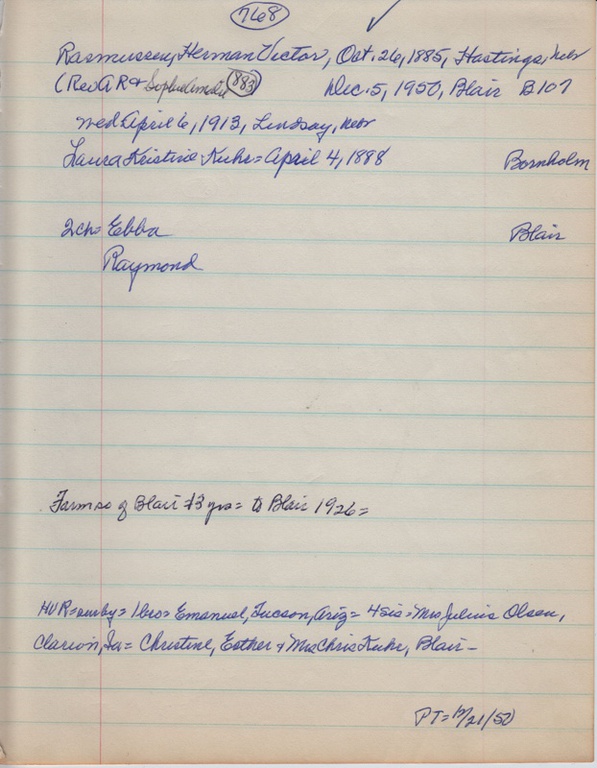 768
Rasmussen, Herman Victor, Oct. 26, 1885, Hastings, Nebr
(Rev A R & Sophie Amalie 883) Dec. 5, 1950, Blair B107
Wed April 6, 1913, Lindsay, Nebr
Laura Kristine Kuhr = April 4, 1888 Bornholm
2ch= Ebba Blair
Raymond
Farm so of Blair 13 yrs = to Blair 1926 =
HVR = survby = 1bro = Emanuel, Tucson, Ariz = 4sis = Mrs Julius Olsen,
Clarion, Ia = Christine, Esther & Mrs Chris Kuhr, Blair -
PT = 12/21/50